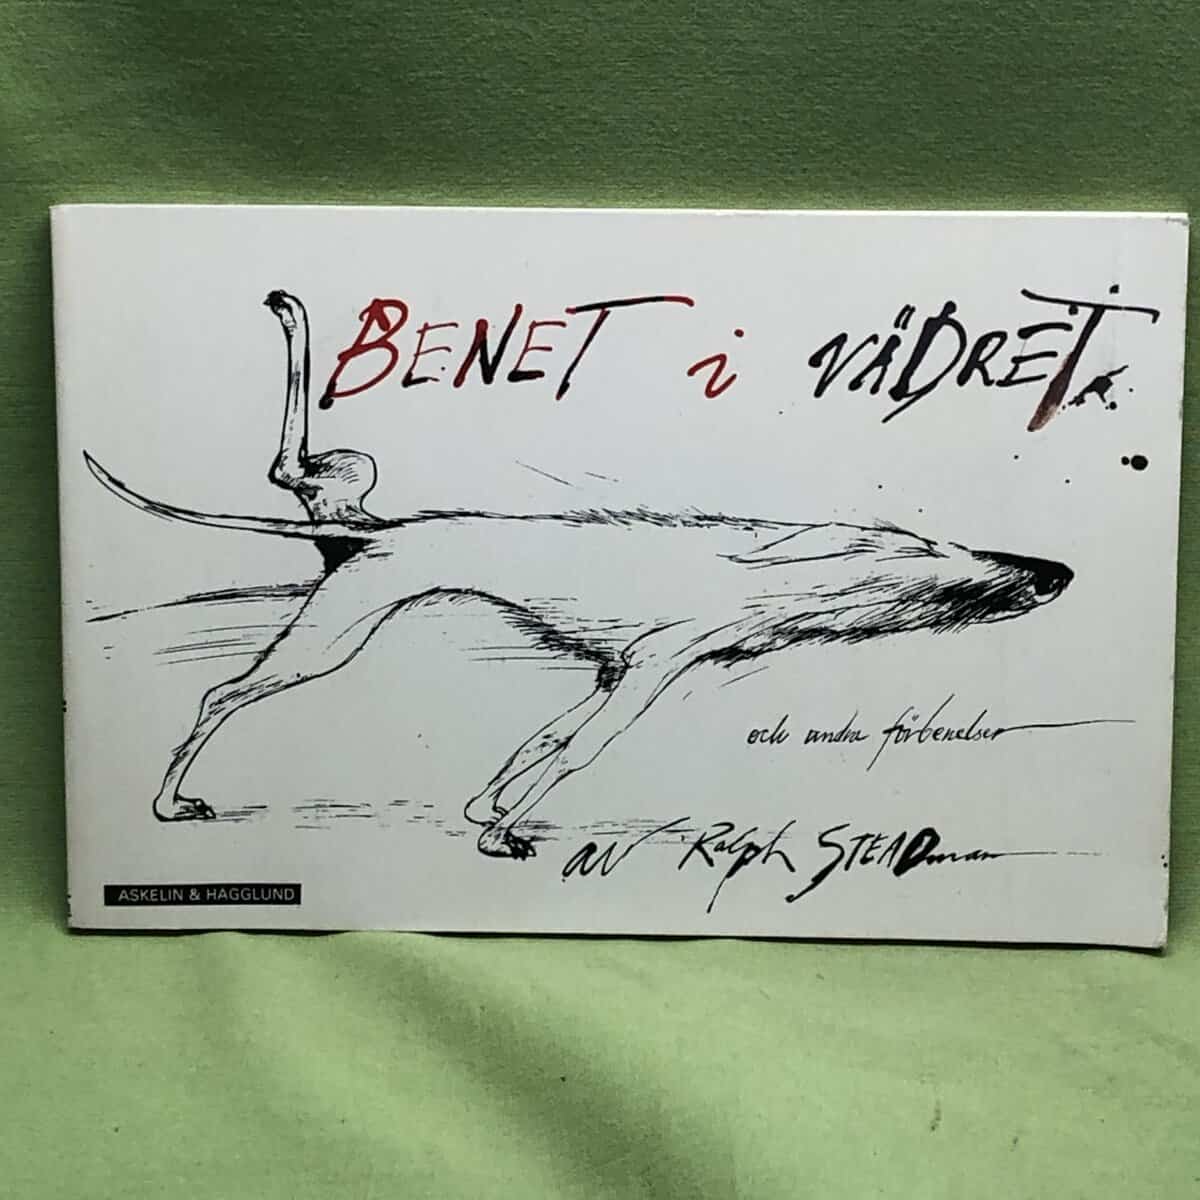 BENET i VÄDRET
och andra förbenelser
av Ralph STEADman
ASKELIN & HÄGGLUND